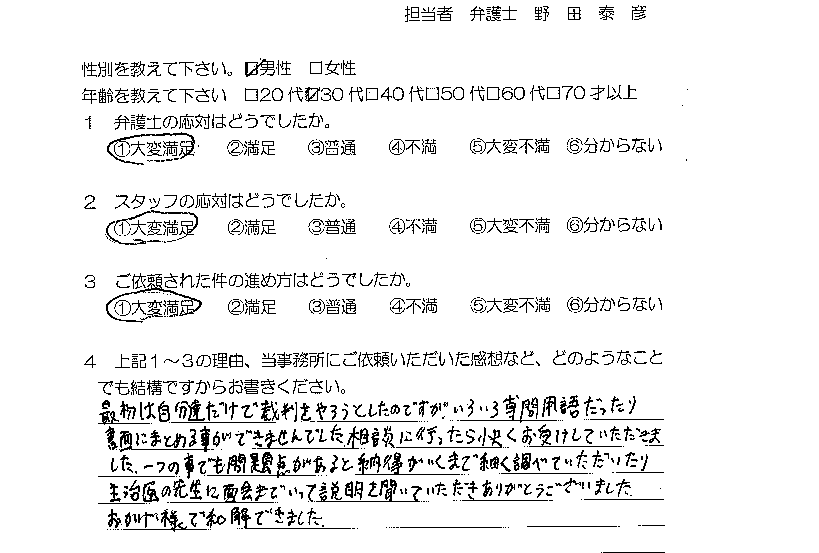 担当者 弁護士 野 田 泰 彦
性別を教えて下さい。☑男性 □女性
年齢を教えて下さい □20代☑30代□40代□50代□60代□70才以上
1 弁護士の応対はどうでしたか。
①大変満足 ②満足 ③普通 ④不満 ⑤大変不満 ⑥分からない
2 スタッフの応対はどうでしたか。
①大変満足 ②満足 ③普通 ④不満 ⑤大変不満 ⑥分からない
3 ご依頼された件の進め方はどうでしたか。
①大変満足 ②満足 ③普通 ④不満 ⑤大変不満 ⑥分からない
4 上記1～3の理由、当事務所にご依頼いただいた感想など、どのようなこと
でも結構ですからお書きください。
最初は自分達だけで裁判をやろうとしたのですが、いろいろ専門用語だったり
書面にまとめる事ができませんでした。相談に行ったら快くお受けしていただきま
した。一つの事でも問題点があると納得がいくまで細く調べていただいたり
主治医の先生に面会までいって説明を聞いていただきありがとうございました。
おかげ様で和解できました。